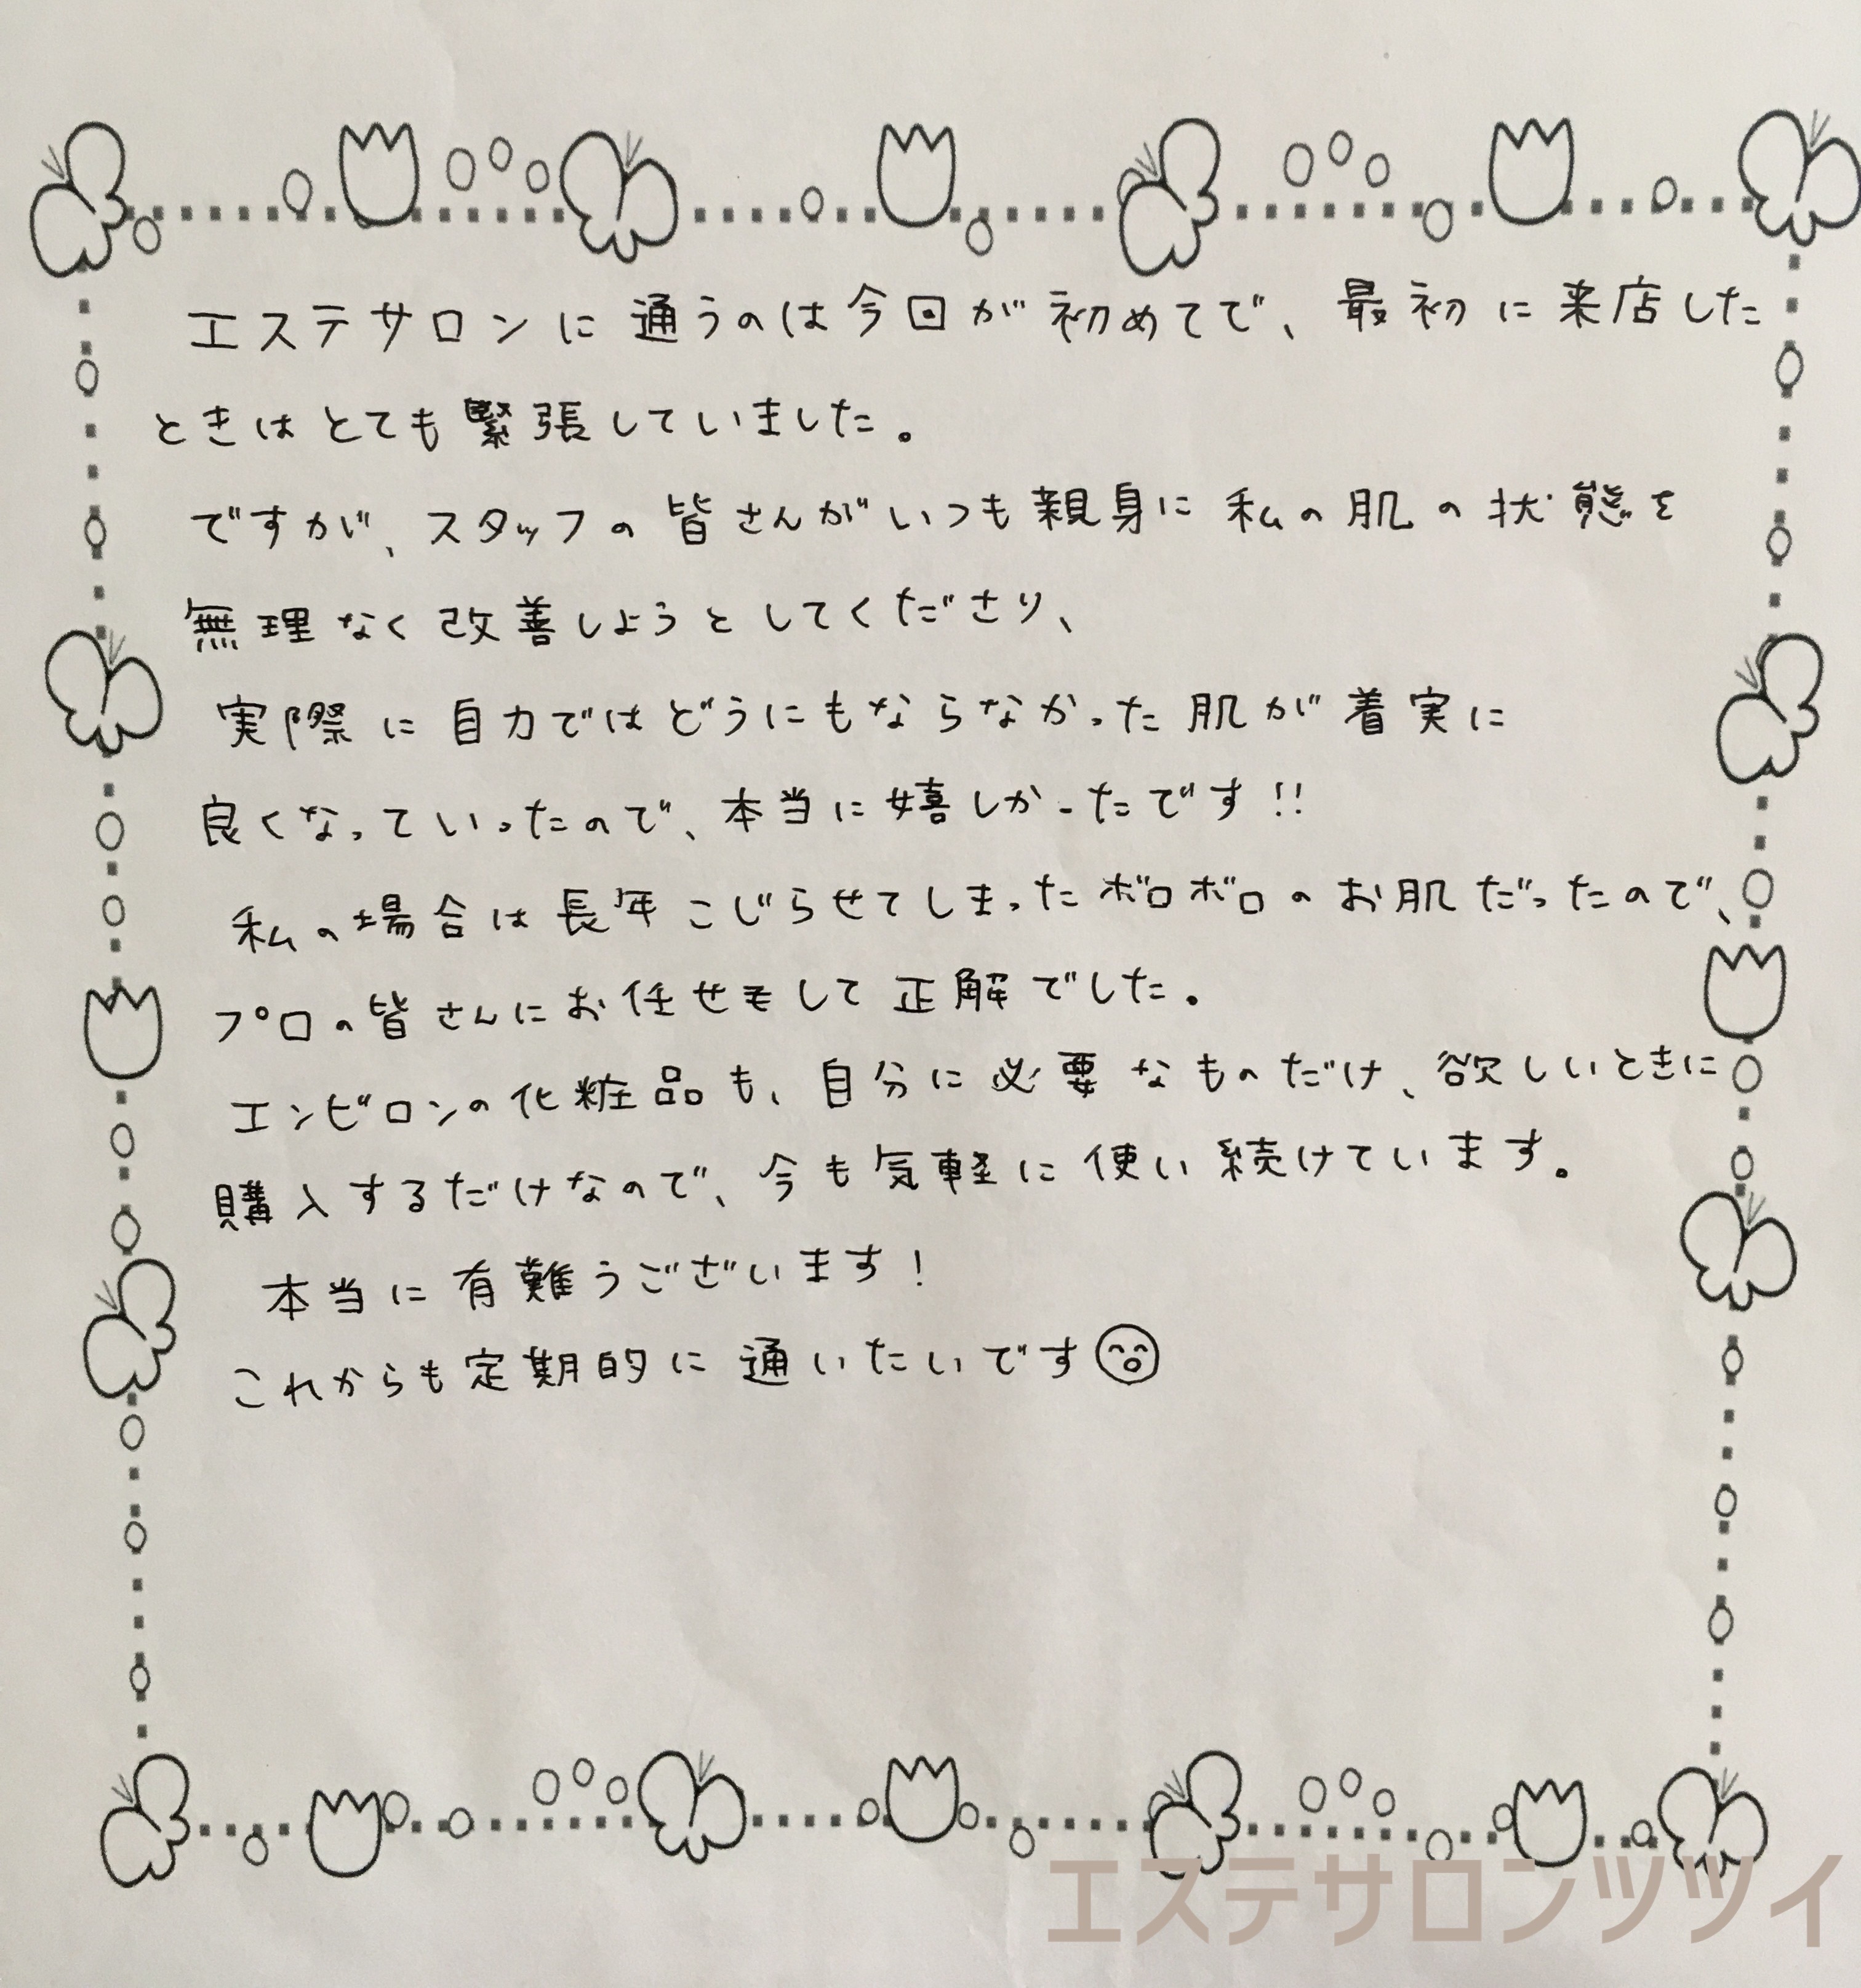 エステサロンに通うのは今回が初めてで、最初に来店した
ときはとても緊張していました。
ですが、スタッフの皆さんがいつも親身に私の肌の状態を
無理なく改善しようとしてくださり、
実際に自力ではどうにもならなかった肌が着実に
良くなっていったので、本当に嬉しかったです!!
私の場合は長年こじらせてしまったボロボロのお肌だったので、
プロの皆さんにお任せをして正解でした。
エンビロンの化粧品も、自分に必要なものだけ、欲しいときに
購入するだけなので、今も気軽に使い続けています。
本当に有難うございます!
これからも定期的に通いたいです
エステサロンツツイ